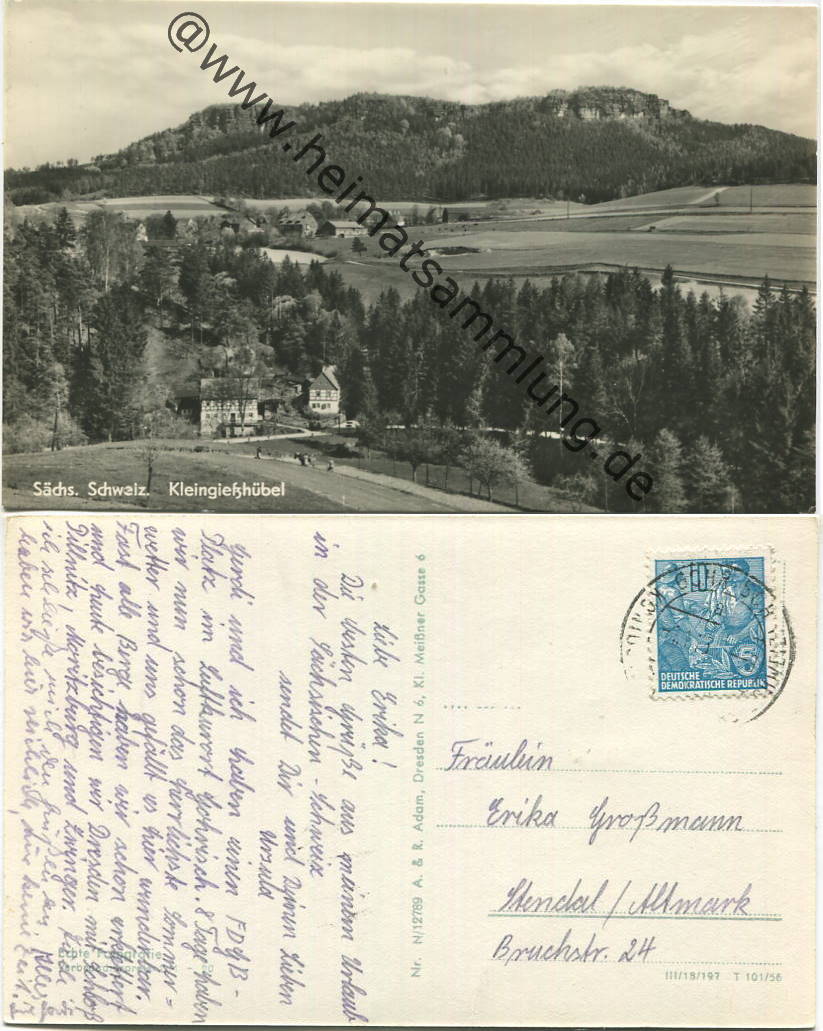 @www.heimatsammlung.de
Sächs. Schweiz. Kleingießhübel
Liebe Erika!
Die besten Grüße aus meinem Urlaub
in der Sächsischen-Schweiz
sendet Dir und Deinen Lieben
Ursula
Gerdi und ich haben einen FDGB-
Platz im Luftkurort Gohrisch. 8 Tage haben
wir nun schon das herrlichste Sommer=
wetter und uns gefällt es hier wunderbar.
Fast alle Berge haben wir schon
und heute besichtigen wir Dresden mit Schloß
Pillnitz! Moritzburg und Zwinger.
ich schließe mich den Grüßen an
haben wir
Echte Fotografie
Nr. N/12789 A. & R. Adam, Dresden N 6, Kl. Meißner Gasse 6
DEUTSCHE
DEMOKRATISCHE REPUBLIK
5
Fräulein
Erika Großmann
Stendal/Altmark
Bruchstr. 24
III/18/197 T 101/56